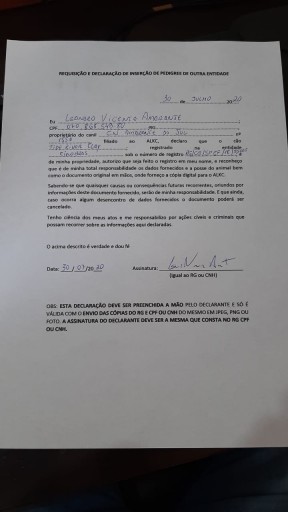 REQUISIÇÃO E DECLARAÇÃO DE INSERÇÃO DE PEDIGREE DE OUTRA ENTIDADE
30 de JULHO 2020
Eu LEANDRO VICENSO
CPF RG
proprietário do canil DO SUL nº
filiado ao ALKC, declaro que o cão
registrado na entidade
sob o número de registro
de minha propriedade, autorizo que seja feito o registro em meu nome, e reconheço
que é de minha total responsabilidade os dados fornecidos e a posse do animal bem
como o documento original em mãos, onde forneço a cópia digital para o ALKC.
Sabendo se que quaisquer causas ou consequências futuras recorrentes, oriundos por
informações deste documento fornecido, serão de minha responsabilidade. E que ainda,
caso ocorra algum desencontro de dados fornecidos o documento poderá ser
cancelado.
Tenho ciência dos meus atos e me responsabilizo por ações cíveis e criminais que
possam recorrer sobre as informações aqui declaradas.
O acima descrito é verdade e dou fé
Data: 30/07/2020 Assinatura:
(igual ao RG ou CNH)
OBS: ESTA DECLARAÇÃO DEVE SER PREENCHIDA A MÃO PELO DECLARANTE E SÓ É
VÁLIDA COM O ENVIO DAS CÓPIAS DO RG E CPF OU CNH DO MESMO EM JPEG, PNG OU
FOTO. A ASSINATURA DO DECLARANTE DEVE SER A MESMA QUE CONSTA NO RG CPF
OU CNH.